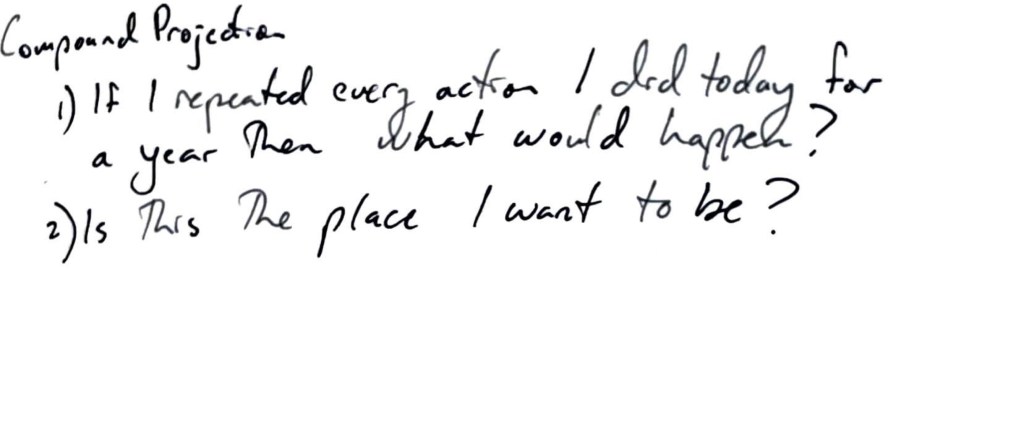 Compound Projection
1) If I repeated every action I did today for
a year Then what would happen?
2) Is This The place I want to be?